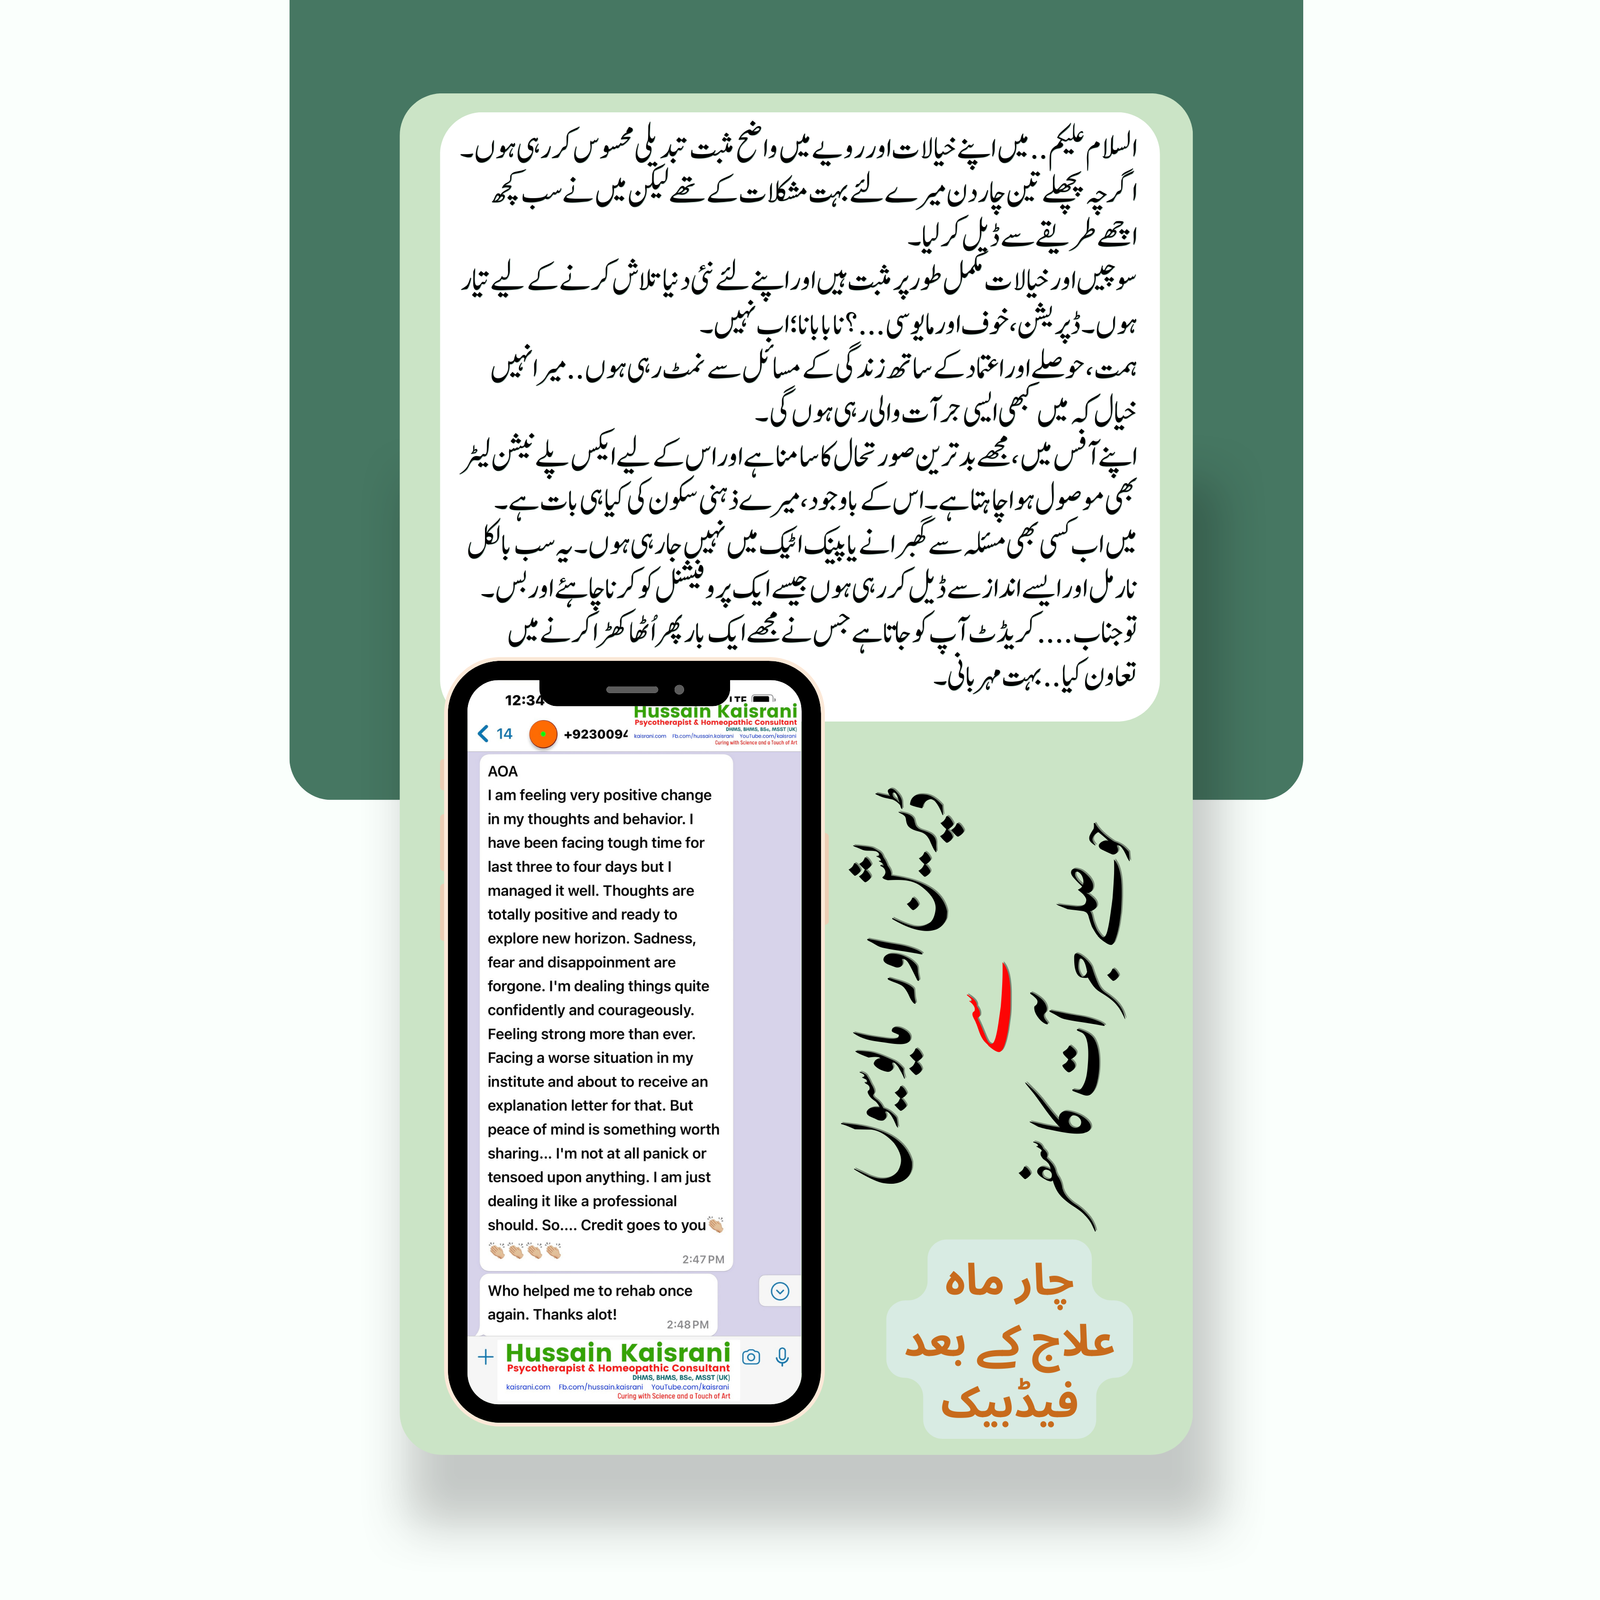 السلام علیکم.. میں اپنے خیالات اور رویے میں واضح مثبت تبدیلی محسوس کر رہی ہوں۔
اگرچہ پچھلے تین چار دن میرے لئے بہت مشکلات کے تھے لیکن میں نے سب کچھ
اچھے طریقے سے ڈیل کر لیا۔
سوچیں اور خیالات مکمل طور پر مثبت ہیں اور اپنے لئے نئی دنیا تلاش کرنے کے لیے تیار
ہوں۔ ڈپریشن، خوف اور مایوسی...؟ نا بابا نا؛ اب نہیں۔
ہمت، حوصلے اور اعتماد کے ساتھ زندگی کے مسائل سے نمٹ رہی ہوں.. میرا نہیں
خیال کہ میں کبھی ایسی جرآت والی رہی ہوں گی۔
اپنے آفس میں، مجھے بدترین صورتحال کا سامنا ہے اور اس کے لیے ایکس پلے نیشن لیٹر
بھی موصول ہوا چاہتا ہے۔ اس کے باوجود، میرے ذہنی سکون کی کیا ہی بات ہے۔
میں اب کسی بھی مسئلہ سے گھبرانے یا پینک اٹیک میں نہیں جا رہی ہوں۔ یہ سب بالکل
نارمل اور ایسے انداز سے ڈیل کر رہی ہوں جیسے ایک پروفیشنل کو کرنا چاہئے اور بس۔
تو جناب.... کریڈٹ آپ کو جاتا ہے جس نے مجھے ایک بار پھر اُٹھا کھڑا کرنے میں
تعاون کیا.. بہت مہربانی۔
12:34 LTE
14 +9230094
Hussain Kaisrani
Psycotherapist & Homeopathic Consultant
DHMS, BHMS, BSc, MSST (UK)
kaisrani.com Fb.com/hussain.kaisrani YouTube.com/kaisrani
Curing with Science and a Touch of Art
AOA
I am feeling very positive change
in my thoughts and behavior. I
have been facing tough time for
last three to four days but I
managed it well. Thoughts are
totally positive and ready to
explore new horizon. Sadness,
fear and disappoinment are
forgone. I'm dealing things quite
confidently and courageously.
Feeling strong more than ever.
Facing a worse situation in my
institute and about to receive an
explanation letter for that. But
peace of mind is something worth
sharing... I'm not at all panick or
tensoed upon anything. I am just
dealing it like a professional
should. So.... Credit goes to you👏🏼
👏🏼👏🏼👏🏼👏🏼
2:47 PM
Who helped me to rehab once
again. Thanks alot!
2:48 PM
Hussain Kaisrani
Psycotherapist & Homeopathic Consultant
DHMS, BHMS, BSc, MSST (UK)
kaisrani.com Fb.com/hussain.kaisrani YouTube.com/kaisrani
Curing with Science and a Touch of Art
ڈپریشن اور مایوسیوں
سے
حوصلے جرآت کا سفر
چار ماہ
علاج کے بعد
فیڈبیک